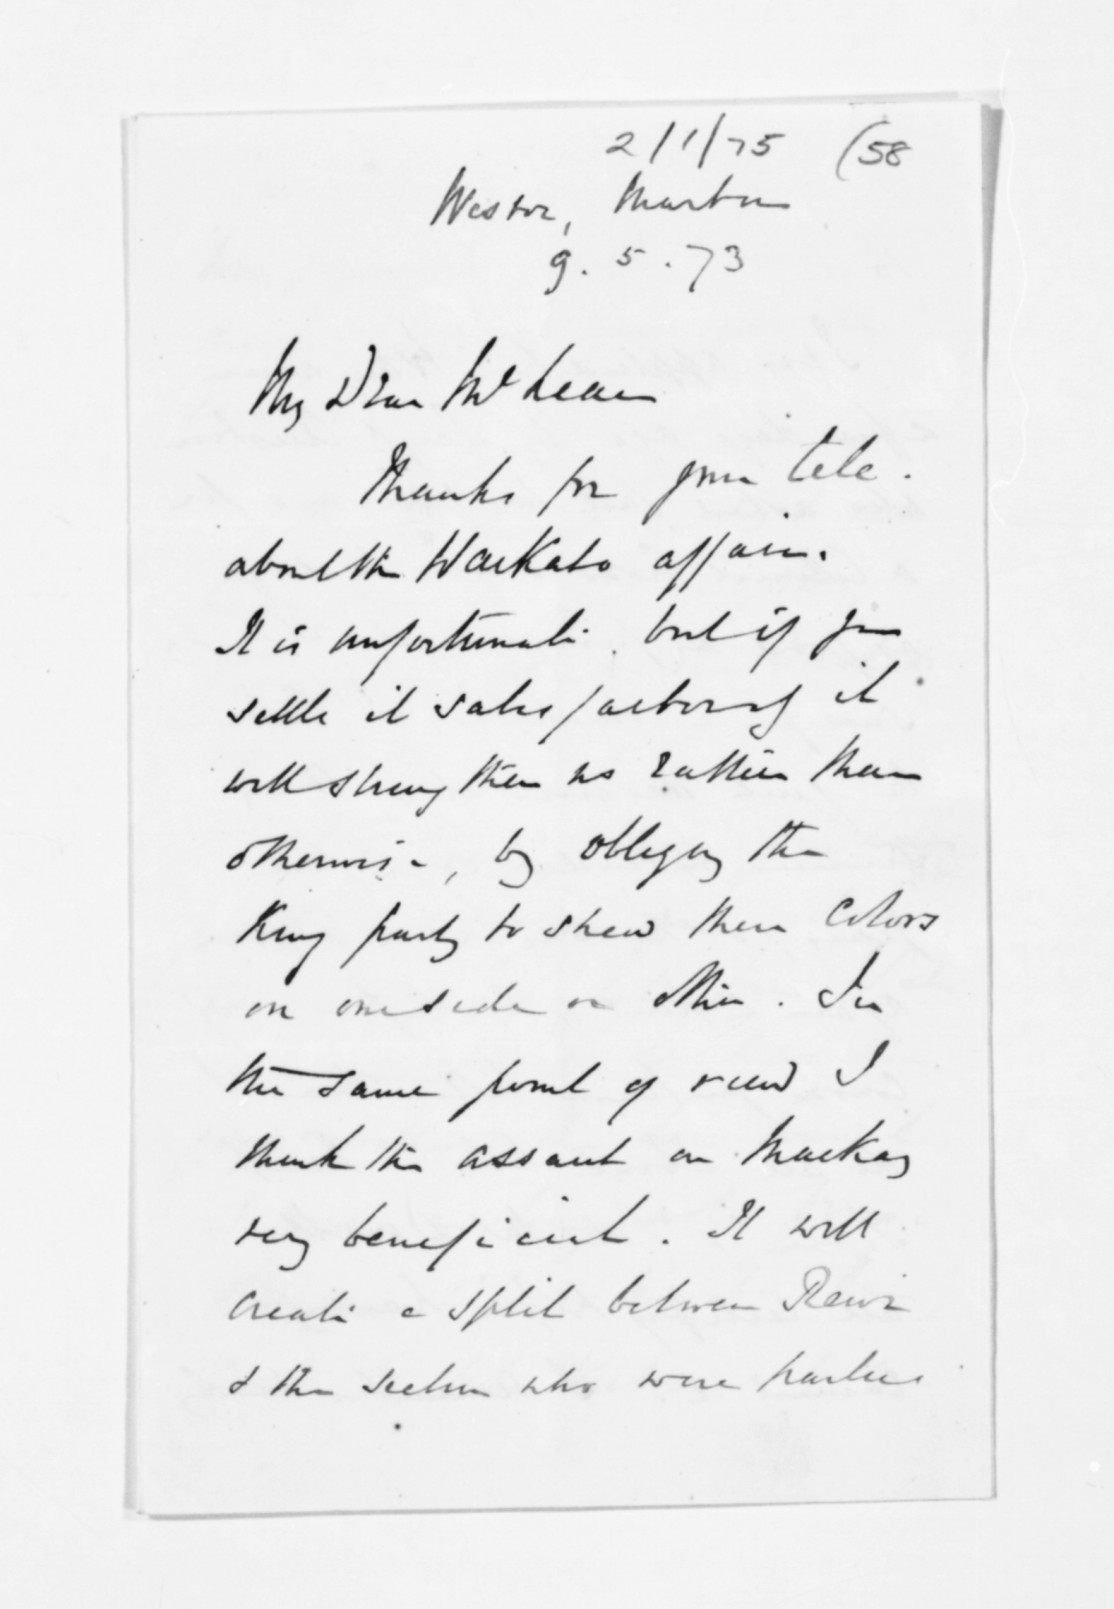 2/1/75 (58
Westoe, Marton
9.5.73
My Dear McLean
Thanks for your tele.
about the Waikato affair.
It is unfortunate, but if you
settle it satisfactorily it
will strengthen us rather than
otherwise, by obliging the
King party to shew their colors
on one side or other. In
the same point of view I
think the assault on Mackay
very beneficial. It will
create a split between Rewi
& the section who were parties